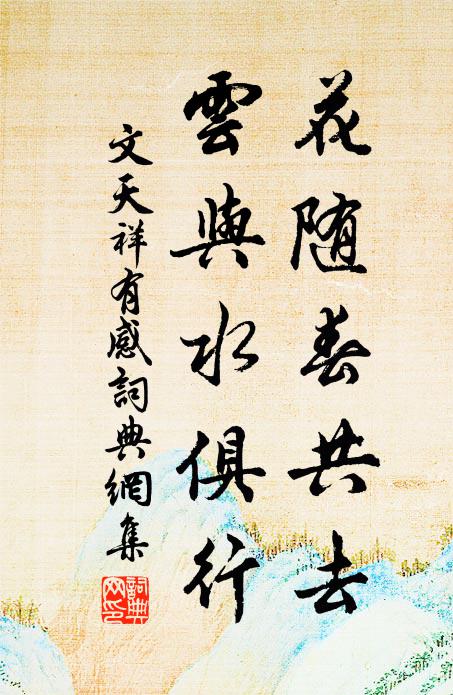 花随春共去
雲與水俱行
文天祥有感詞典網集
詞典网印